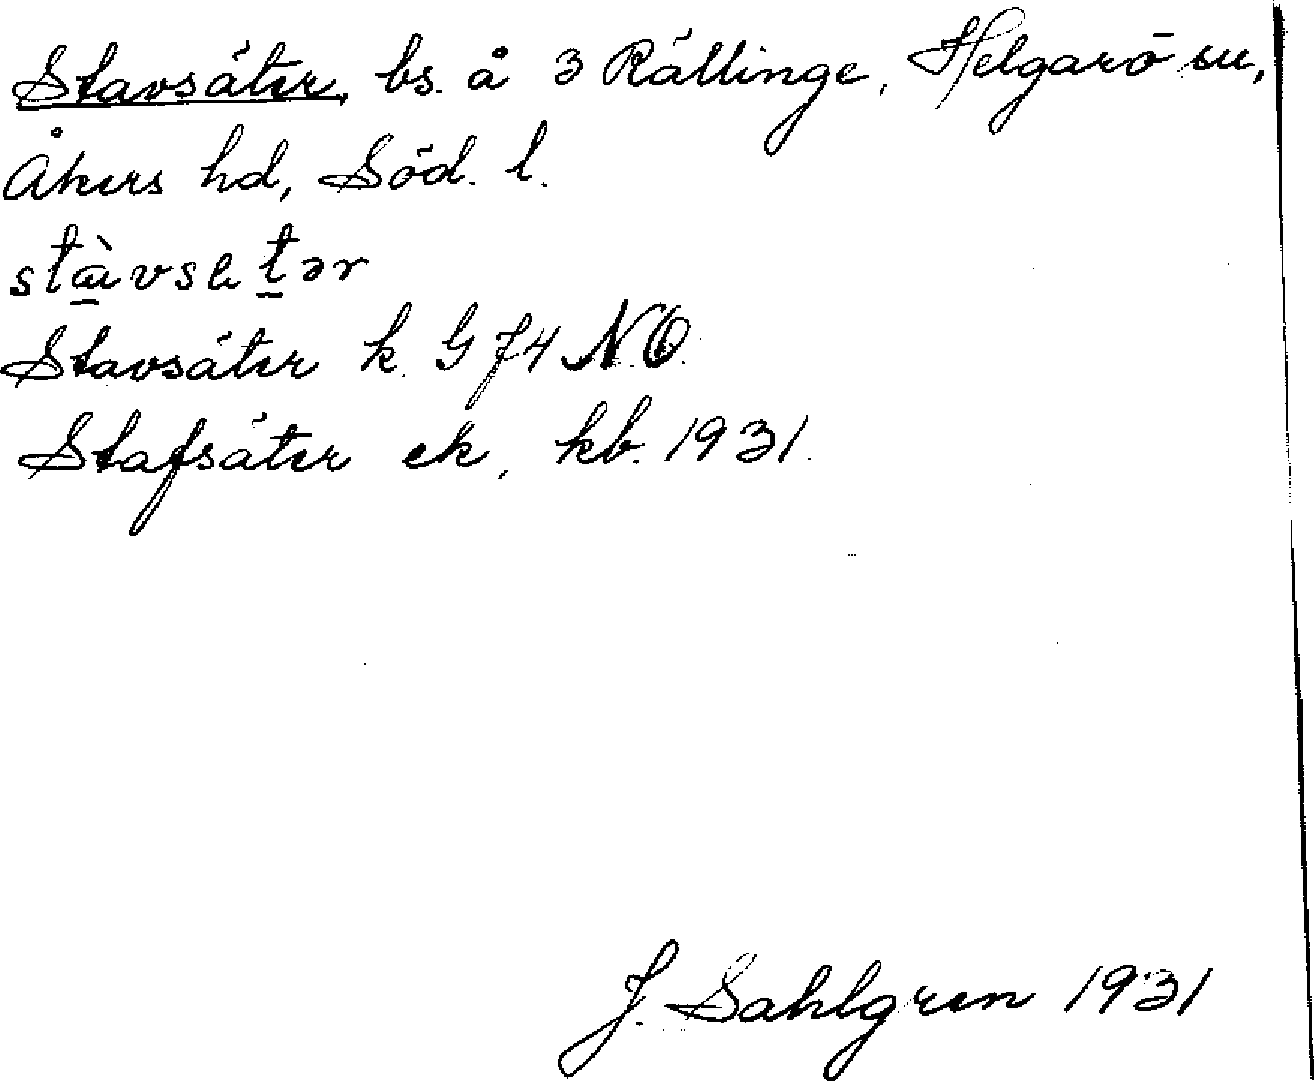 Stavsäter, bs. å 3 Rällinge, Helgarö sn,
Åkers hd, Söd. l.
stàvsetər
Stavsäter k. G J4 N.O.
Stafsäter ek, kb. 1931.
J. Sahlgren 1931